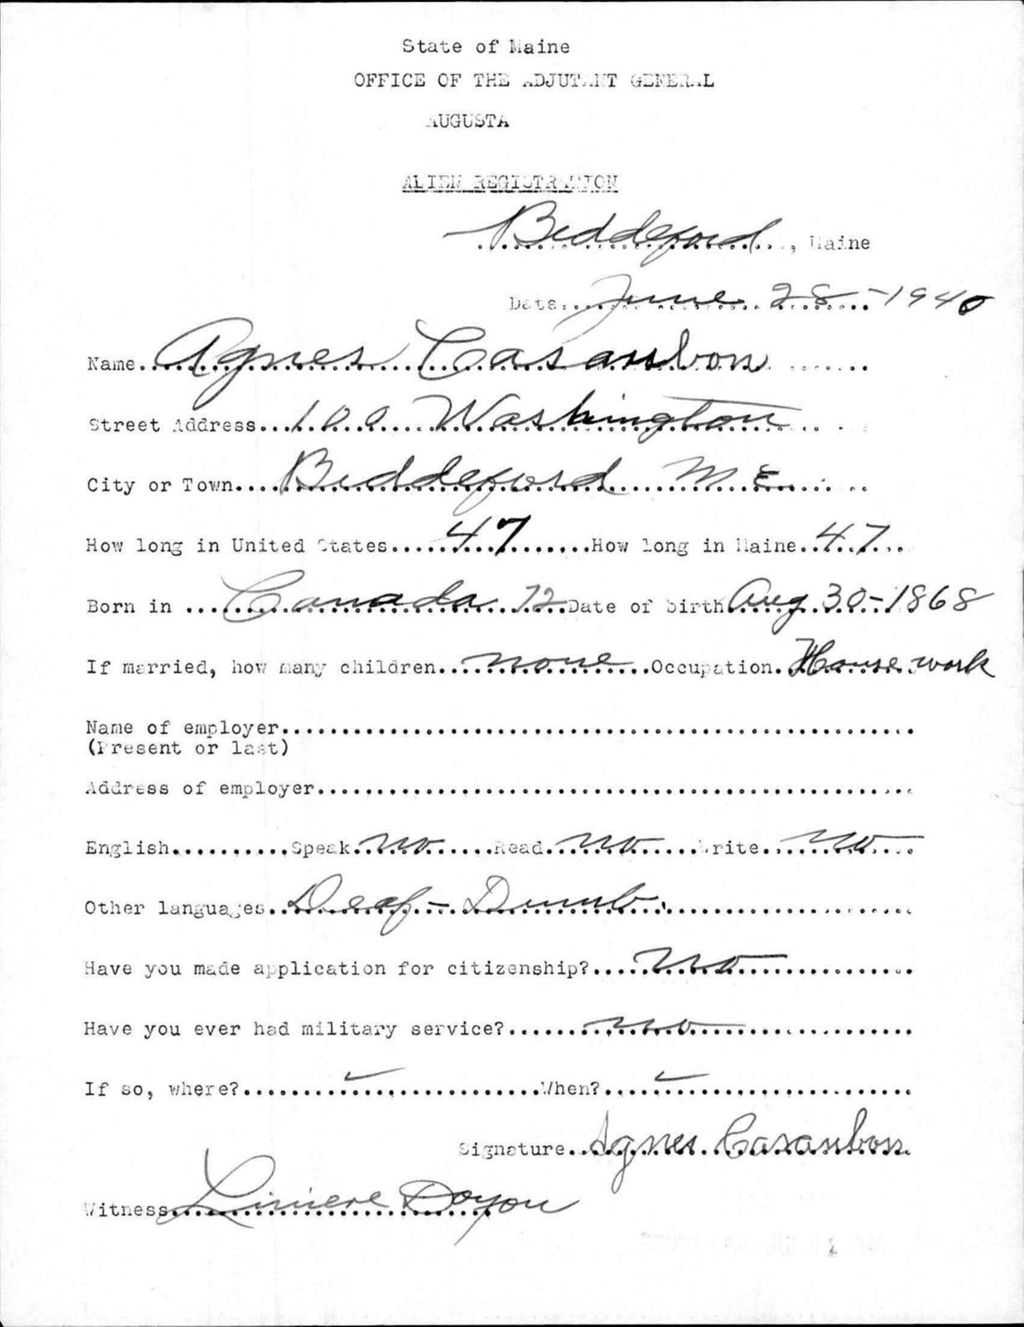 State of Maine
OFFICE OF THE ADJUTANT GENERAL
AUGUSTA
ALIEN REGISTRATION
Beddeford, Maine
Date June 28-1940
Name Agnes Casaubon
Street Address 100 Washington
City or Town Beddeford ME
How long in United States 47 How long in Maine 47
Born in Canada 72 Date of birth Aug 30-1868
If married, how many children none Occupation House work
Name of employer
(Present or last)
Address of employer
English Speak no Read no Write no
Other languages Deaf-Dumb
Have you made application for citizenship? no
Have you ever had military service? no
If so, where? When?
Signature Agnes Casaubon
Witness Liniere Doyon